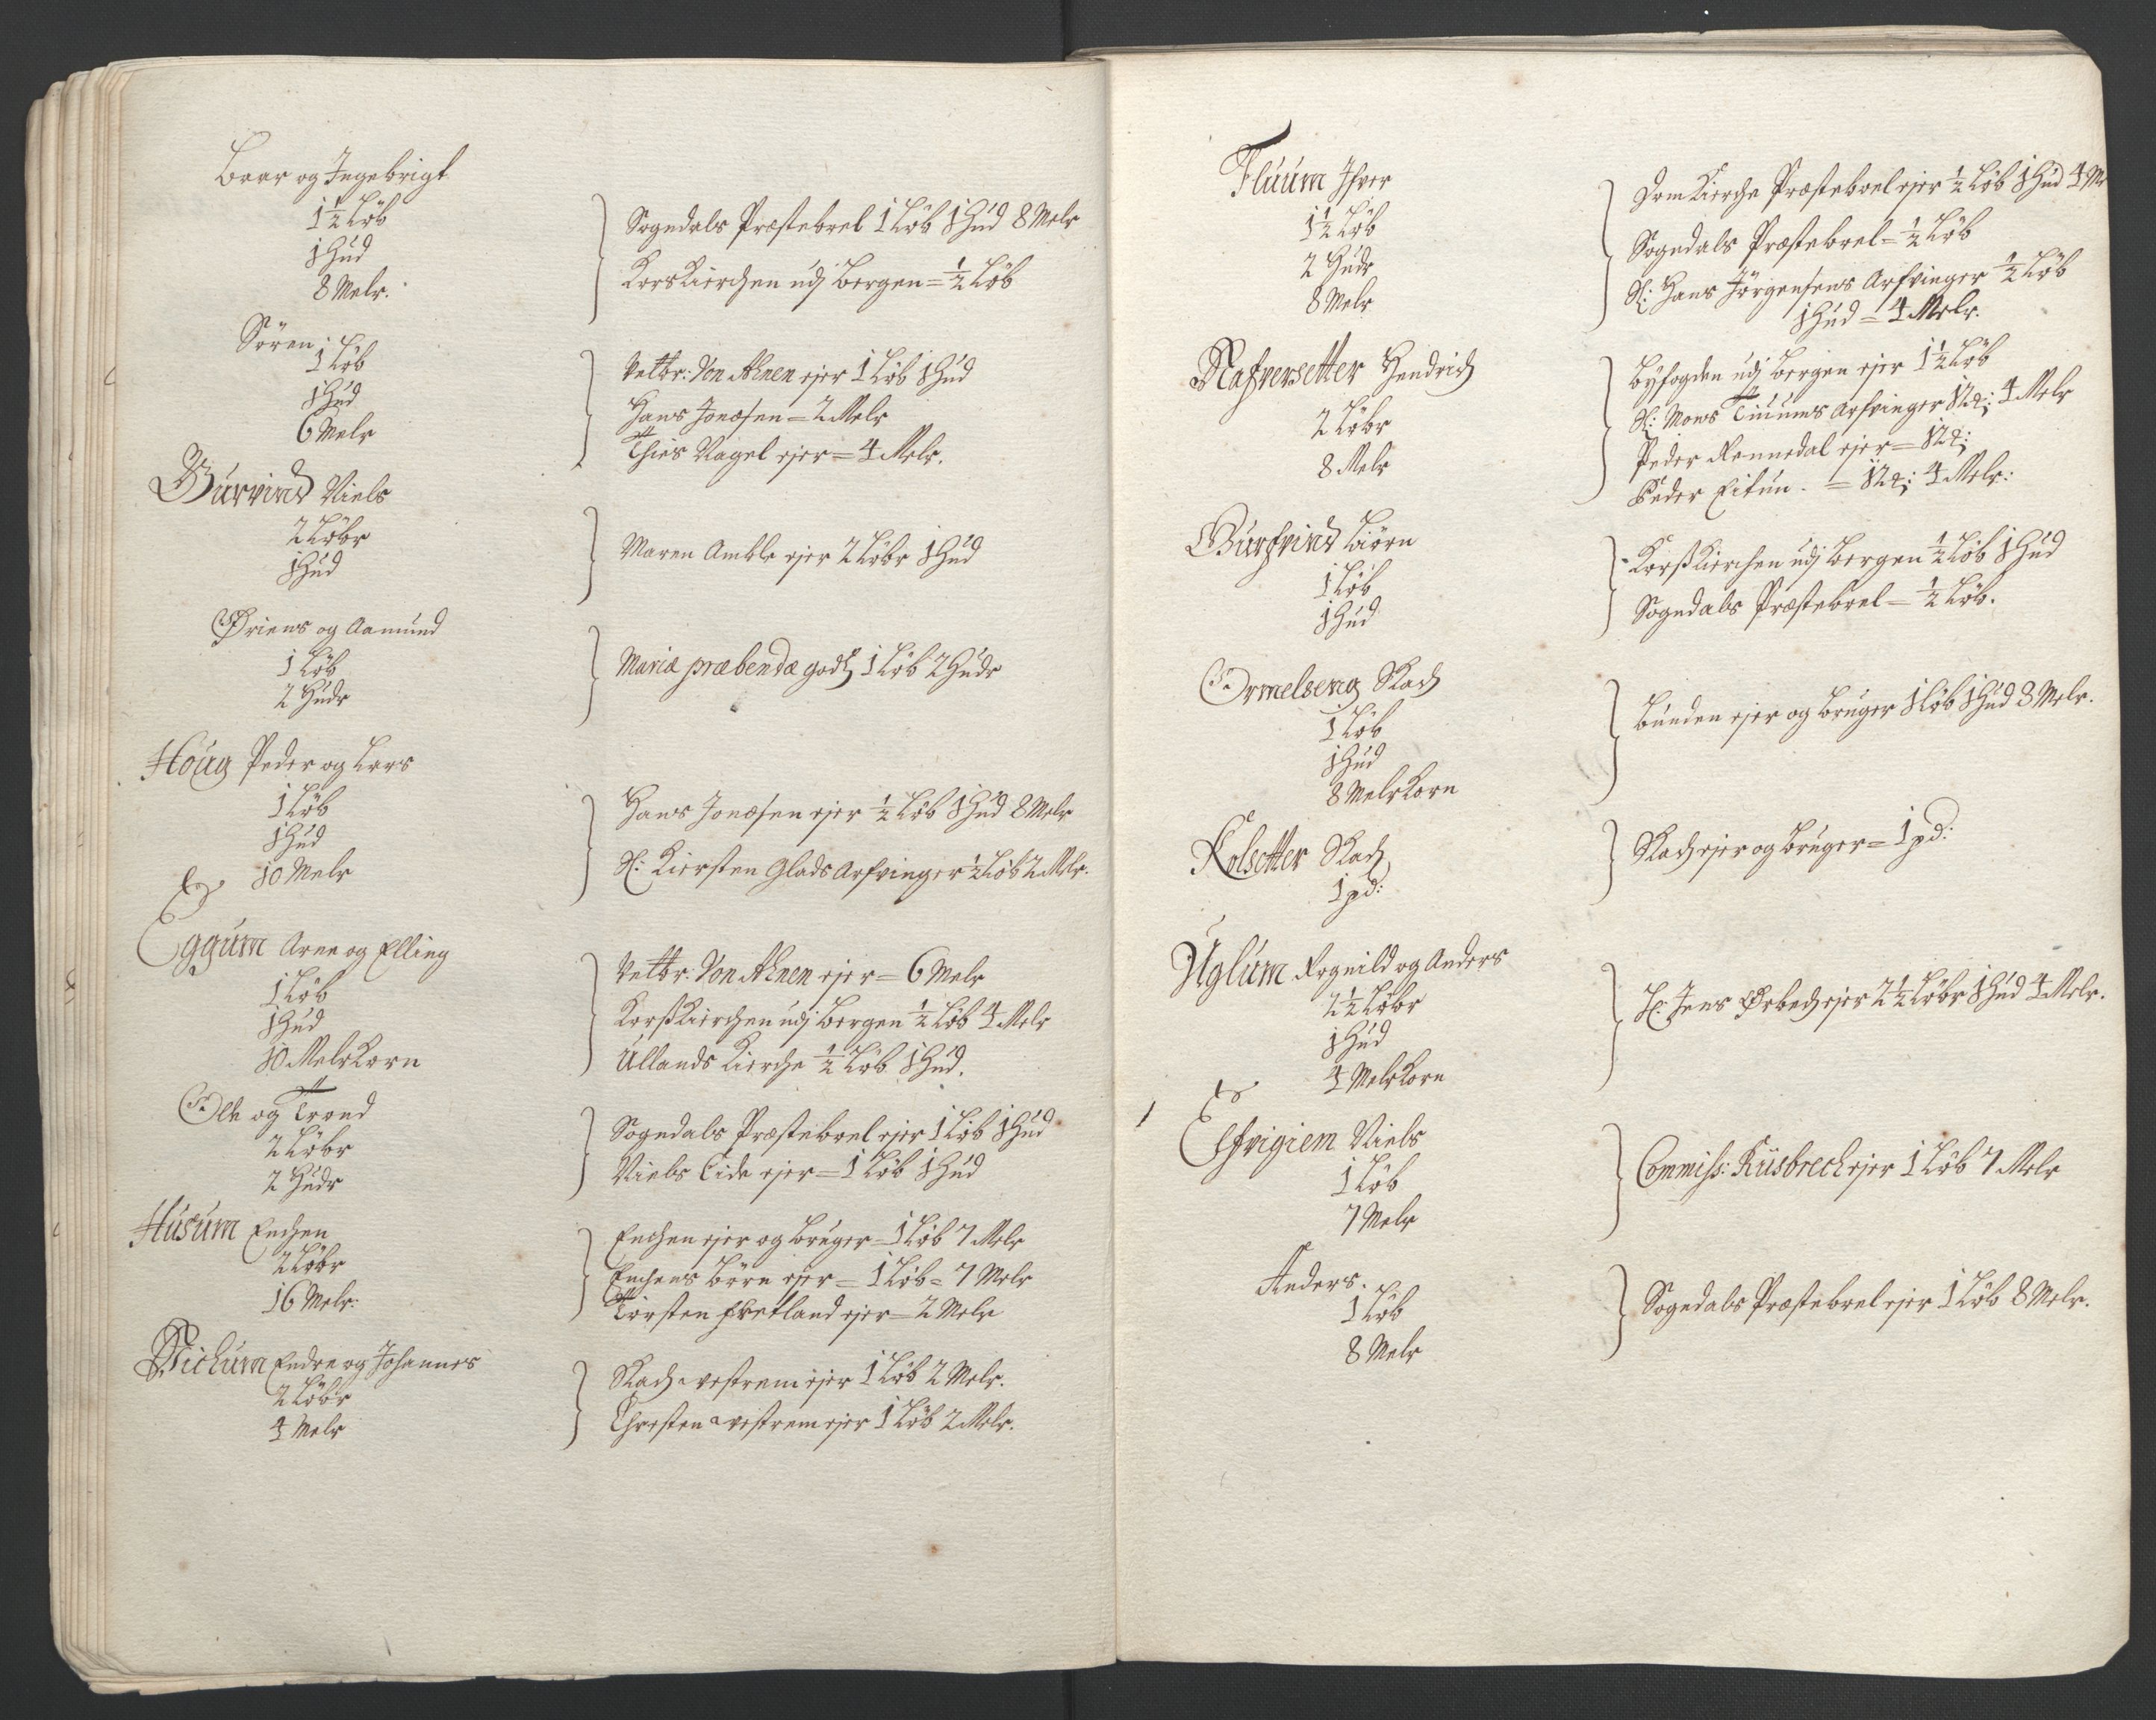 Baar og Ingebrigt
1 1/2 Løb
1 Hud
8 Melr.
Sogndals Præsteboel 1 Løb 1 Hud 8 Melr
Korskierchen udj Bergen = 1/2 Løb
Sören.
1 Løb
1 Hud
6 Melr
Velbr: Von Ahnen ejer 1 Løb 1 Hud
Hans Jonæsen = 2 Melr
Thies Nagel ejer = 4 Melr.
Gurvind Niels
2 Løbr
1 Hud
Maren Amble ejer 2 Løbr 1 Hud
Øriens og Aamund
1 Løb
2 Hudr
Mariæ præbendæ godtz 1 Løb 2 Hudr
Houg Peder og Lars
1 Løb
1 Hud
10 Melr
Hans Jonæsen ejer 1/2 Løb 1 Hud 8 Melr
Sl: Kiersten Glads Arfvinger 1/2 Løb 2 Mlr.
Eggum Arne og Elling
1 Løb
1 Hud
10 Melr Korn
Velbr: Von Ahnen ejer = 6 Melr
Korsskierchen udj Bergen 1/2 Løb 4 Melr
Ullands Kierche 1/2 Løb 1 Hud.
Ole og Trond
2 Løbr
2 Hudr
Sogndals Præsteboel ejer 1 Løb 1 Hud
Niels Eide ejer = 1 Løb 1 Hud
Husum Enchen
2 Løbr
16 Melr:
Enchen ejer og bruger = 1 Løb 7 Melr
Enchens Børn ejer = 1 Løb = 7 Melr
Torsten Fretland ejer = 2 Melr
Nichum Endre og Johannes
2 Løbr
4 Melr
Rach vestrem ejer 1 Løb 2 Melr.
Chresten vestrem ejer 1 Løb 2 Melr.
Fluum Ifver
1 1/2 Løb
2 Hudr
8 Melr
Domkierche Præsteboel ejer 1/2 Løb 1 Hud 4 Mr
Sogndals Præsteboel = 1/2 Løb
Sl: Hans Jörgensens Arfvinger 1/2 Løb
1 Hud = 4 Melr.
Nafversetter Hendrich
2 Løbr
8 Melr
Byfogden udj Bergen ejer 1 1/2 Løb
Sl: Mons Tiuums Arfvinger 4 Melr
Peder Rennedal ejer =
Peder Eitun. = 4 Melr:
Gurfvind Biörn
1 Løb
1 Hud
Korsskierchen udj Bergen 1/2 Løb 1 Hud
Sogndals Præstebroel = 1/2 Løb.
Ormelseng Rach
1 Løb
1 Hud
8 Melr Korn
Bunden ejer og bruger 1 Løb 1 Hud 8 Melr.
Kolsetter Rach
1 pd:
Rach ejer og bruger = 1 pd:
Uglum Rognild og Anders
2 1/2 Løbr
1 Hud
4 Melr Korn
Hr. Jens Ørbech ejer 2 1/2 Løbr 1 Hud 4 Melr.
Elfvigiem Niels
1 Løb
7 Melr
Commiss: Rüsbrech ejer 1 Løb 7 Melr
Anders.
1 Løb
8 Melr
Sogndals Præstebroel ejer 1 Løb 8 Melr.